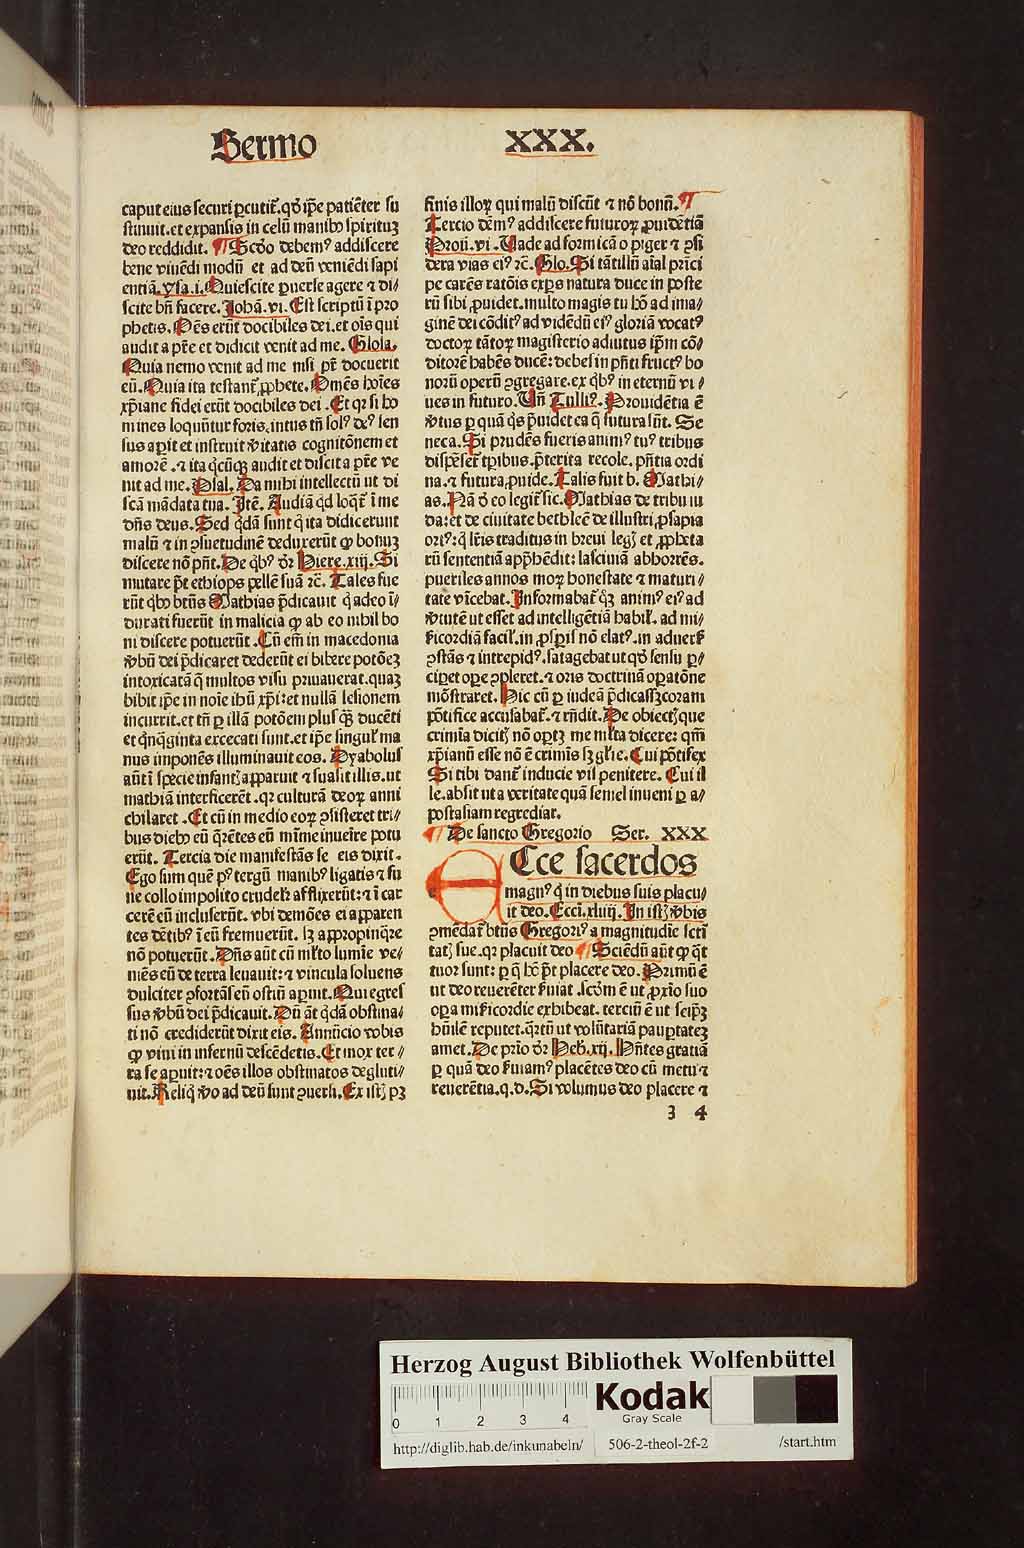 Sermo XXX.
caput eius securi ꝑcutit᷑. qd̓ ip̄e patiēter su
stinuit. et expansis in celū manibꝰ spirituꝫ
deo reddidit. ¶ Scd̓o debemꝰ addiscere
bene viuēdi modū et ad deū veniēdi sapi
entiā. ysa. i. Quiescite ꝑuerse agere ⁊ di⸗
scite bn̄ facere. Johā. vi. Est scriptū ī pro
phetis. Oēs erūt docibiles dei. et oīs qui
audit a pr̄e et didicit venit ad me. Glosa.
Quia nemo venit ad me nisi pr̄ docuerit
eū. Quia ita testant᷑ ꝓphete. Omēs hoīes
xp̄iane fidei erūt docibiles dei. Et qꝛ si ho
mines loquūtur foris. intus tn̄ solꝰ deꝰ sen
sus aꝑit et instruit v̓itatis cognitōnem et
amorē. ⁊ ita qͥcūqꝫ audit et discit a pr̄e ve
nit ad me. Psal. Da mihi intellectū ut di
scā mādata tua. Itē. Audiā qd loqͣt᷑ ī me
dn̄s deus. Sed qͥdā sunt qͥ ita didicerunt
malū ⁊ in ꝯsuetudinē deduxerūt ꝙ bonuꝫ
discere nō pn̄t. De qͥbꝰ dr̄ Hiere. xiij. Si
mutare pt̄ ethiops pellē suā ⁊c̄. Tales fue
rūt qͥbꝰ btūs Mathias p̄dicauit qͥ adeo ī⸗
durati fuerūt in malicia ꝙ ab eo nihil bo
ni discere potuerūt. Cū em̄ in macedonia
v̓bū dei p̄dicaret dederūt ei bibere potōeꝫ
intoxicatā q̄ multos visu priuauerat. quaꝫ
bibit ip̄e in noīe ihū xp̄i: et nullā lesionem
incurrit. et tn̄ ꝑ illā potōem plusqͣꝫ ducēti
et qͥnqͣginta excecati sunt. et ip̄e singul᷑ ma
nus imponēs illuminauit eos. Dyabolus
aūt ī specie infant̄ apparuit ⁊ suasit illis. ut
mathiā interficerēt. qꝛ culturā deoꝝ anni
chilaret. Et cū in medio eoꝝ ꝯsisteret tri⸗
bus diebꝰ eū qͣrētes eū mīme inuēire potu
erūt. Tercia die manifestās se eis dixit.
Ego sum quē pꝰ tergū manibꝰ ligatis ⁊ fu
ne collo impolito crudelr̄ afflixerūt: ⁊ ī car
cerē eū incluserūt. vbi demōes ei apparen
tes dētibꝰ ī eū fremuerūt. sꝫ appropinqͣre
nō potuerūt. Dn̄s aūt cū ml̓to lumīe ve⸗
niēs eū de terra leuauit: ⁊ vincula soluens
dulciter ꝯfortās eū ostiū aꝑuit. Qui egres
sus v̓bū dei p̄dicauit. Dū āt qͥdā obstina⸗
ti nō crediderūt dixit eis. Annūcio vobis
ꝙ viui in infernū descēdetis. Et mox ter⸗
ra se aꝑuit: ⁊ oēs illos obstinatos degluti⸗
uit. Reliqͥ v̓o ad deū sunt ꝯuersi. Ex istꝭ pꝫ
finis illoꝝ qui malū discūt ⁊ nō bonū. ¶
Tercio dem̓ꝰ addiscere futuroꝝ ꝓuidētiā
Prou. vi. Vade ad formicā o piger ⁊ ꝯsi
dera vias eiꝰ ⁊c̄. Glo. Si tātillū aīal prīci
pe carēs ratōis exꝑs natura duce in poste
rū sibi ꝓuidet. multo magis tu hō ad ima⸗
ginē dei cōditꝰ ad vidēdū eiꝰ gloriā vocatꝰ
doctoꝝ tātoꝝ magisterio adiutus ip̄m cō⸗
ditorē habēs ducē: debes in pn̄ti fructꝰ bo
norū operū ꝯgregare. ex qͥbꝰ in eternū vi⸗
ues in futuro. Vn̄ Tulliꝰ. Prouidētia ē
v̓tus ꝑ quā qͥs p̄uidet ea q̄ futura sūt. Se
neca. Si prudēs fueris animꝰ tuꝰ tribus
dispēset᷑ tꝑibus. p̄terita recole. pn̄tia ordi
na. ⁊ futura ꝓuide. Talis fuit b. Mathi⸗
as. Nā d̓ eo legit᷑ sic. Mathias de tribu iu
da: et de ciuitate bethleē de illustri ꝓsapia
ortꝰ: qͥ lr̄is traditus in breui legꝭ et ꝓphēta
rū sententiā app̄hēdit: lasciuiā abhorrēs.
pueriles annos moꝝ honestate ⁊ maturi⸗
tate vīcebat. Informabat᷑ qͦꝫ animꝰ eiꝰ ad
v̓tutē ut esset ad intelligētiā habil᷑. ad mi⸗
s̓icordiā facil᷑. in ꝓsꝑis nō elatꝰ. in aduers̓
ꝯstās ⁊ intrepidꝰ. satagebat ut qd̓ sensu ꝑ⸗
ciꝑet oꝑe ꝯpleret. ⁊ oris doctrinā oꝑatōne
mōstraret. Hic cū ꝑ iudeā p̄dicassꝫ coram
pōtifice accusabat᷑. ⁊ rn̄dit. De obiectꝭ que
crimīa dicitꝭ nō oportꝫ me ml̓ta dicere: qm̄
xp̄ianū esse nō ē crimīs sꝫ gl̓ie. Cui pōtifex
Si tibi dant᷑ inducie vis penitere. Cui il
le. absit ut a veritate quā semel inueni ꝑ a⸗
postasiam regrediar.
¶ De sancto Gregorio Ser. XXX
Ecce sacerdos
magnꝰ qͥ in diebus suis placu⸗
it deo. Ecci. xliiij. In istꝭ v̓bis
ꝯmēdat᷑ btūs Gregoriꝰ a magnitudīe scti
tatꝭ sue. qꝛ placuit deo ¶ Sciēdū aūt ꝙ qͣt
tuor sunt: ꝑ q̄ hō pt̄ placere deo. Primū ē
ut deo reuerēter s̓uiat. scd̓m ē ut ꝓxīo suo
oꝑa mis̓icordie exhibeat. terciū ē ut seip̄ꝫ
hūilē reputet. qͣrtū ut volūtariā pauꝑtateꝫ
amet. De prīo dr̄ Heb. xij. Hn̄tes gratiā
ꝑ quā deo s̓uiamꝰ placētes deo cū metu ⁊
reuerētia. q. d. Si volumus deo placere ⁊
3 4
Herzog August Bibliothek Wolfenbüttel
Kodak
Gray Scale
0 1 2 3 4
http://diglib.hab.de/inkunabeln/ 506-2-theol-2f-2 /start.htm